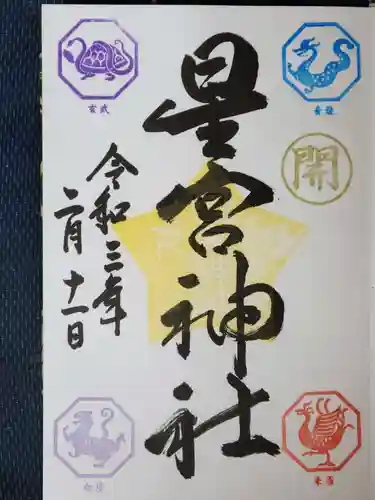 玄武
青龍
開
星宮神社
令和三年
二月十一日
白虎
朱雀